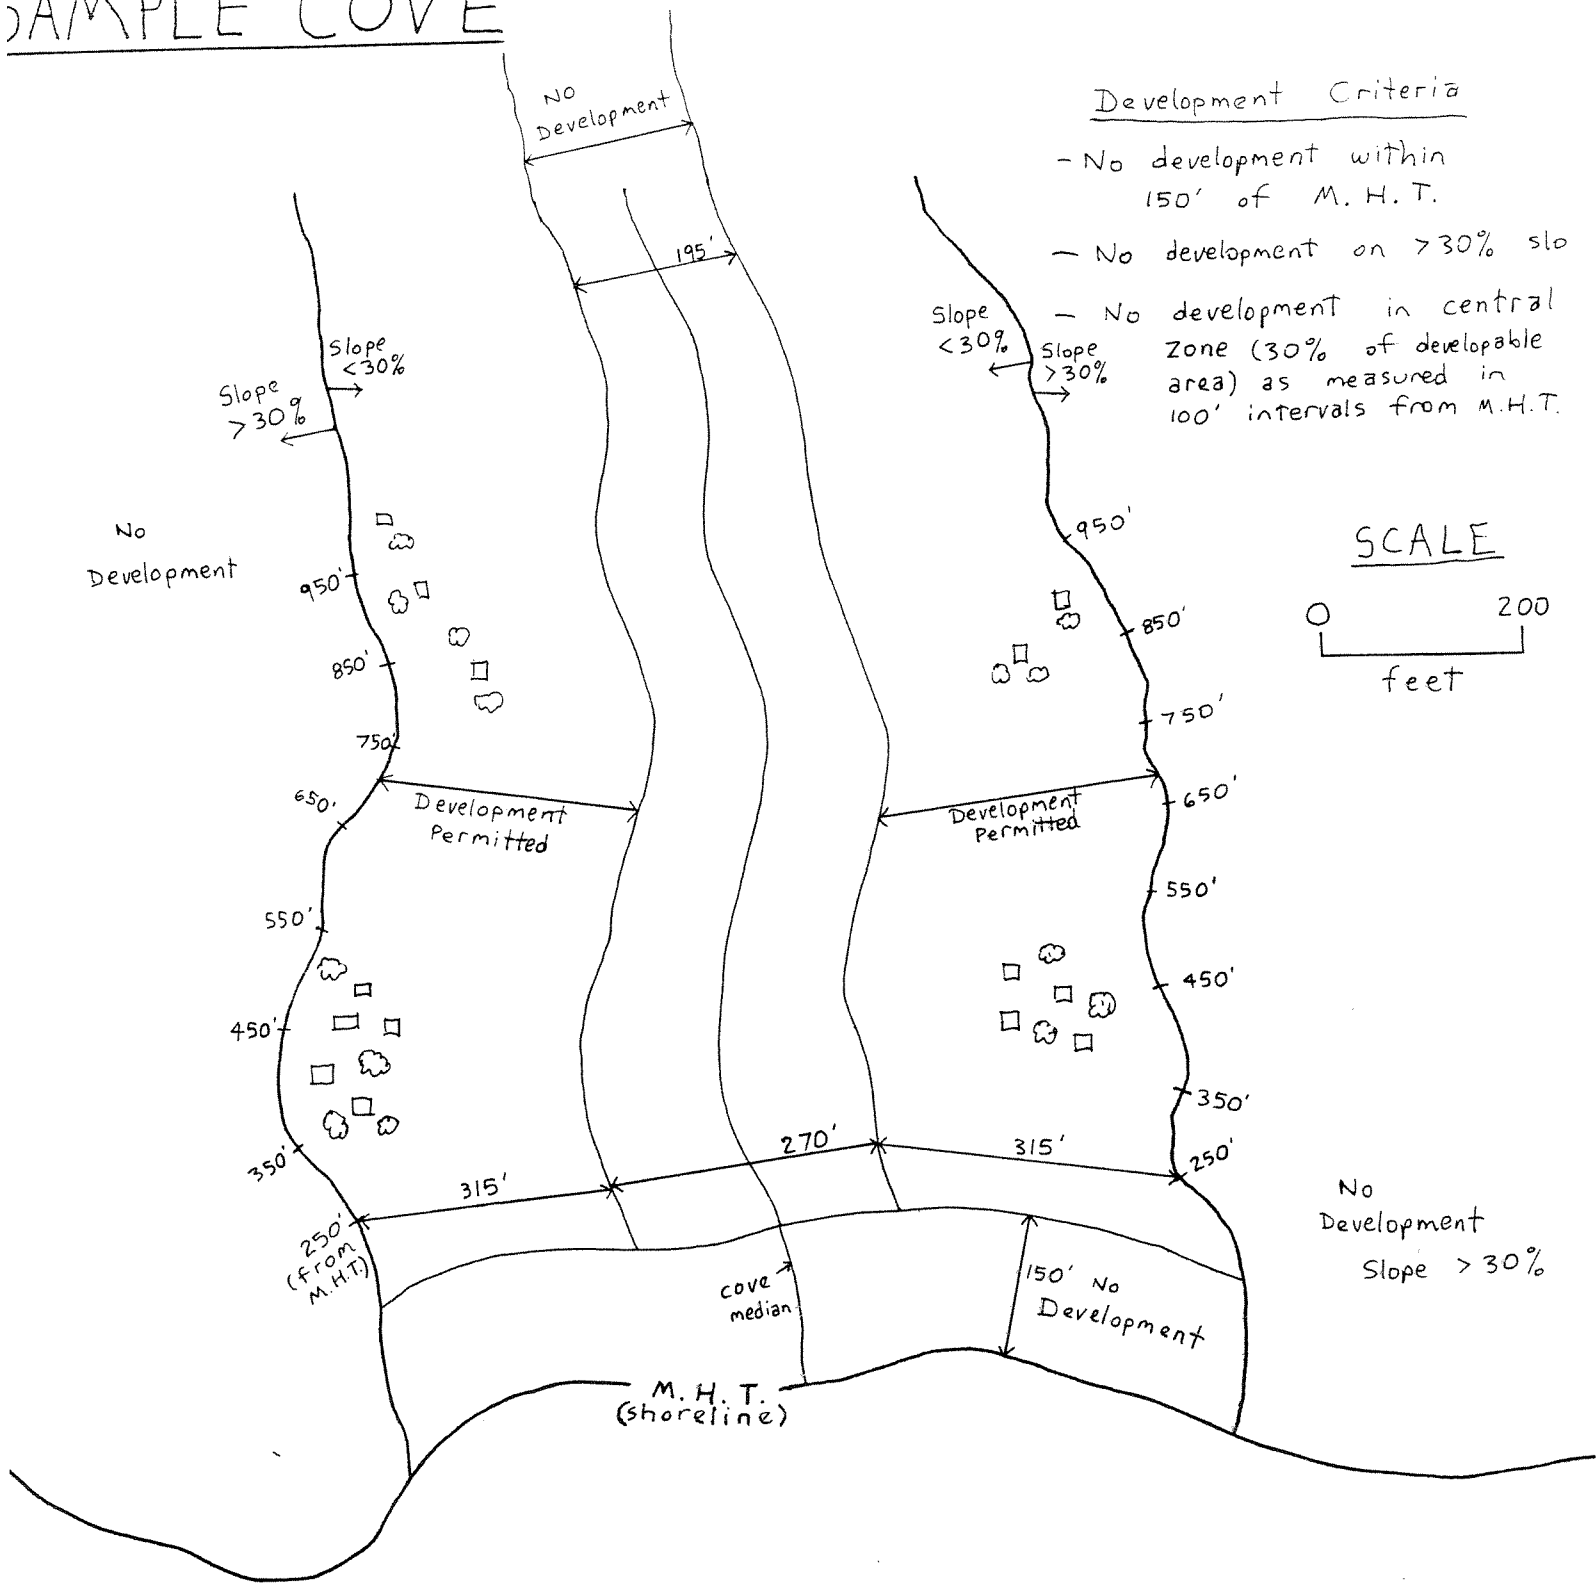 SAMPLE COVE
No
Development
195'
Development Criteria
- No development within
150' of M. H. T.
- No development on >30% slo
- No development in central
zone (30% of developable
area) as measured in
100' intervals from M.H.T.
Slope
<30%
Slope
>30%
Slope
<30%
Slope
>30%
No
Development
950'
850'
750'
650'
550'
450'
350'
250'
(from
M.H.T.)
950'
850'
750'
650'
550'
450'
350'
250'
SCALE
0 200
feet
Development
Permitted
Development
Permitted
315'
270'
315'
No
Development
Slope >30%
cove
median
150' No
Development
M. H. T.
(shoreline)